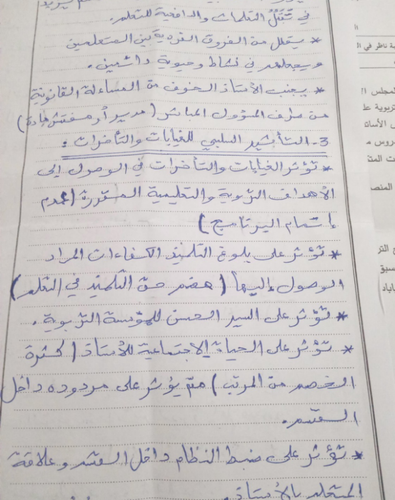 في تقبل التعلمات والدافعية للتعلم.
* يقلل من الفروق الفردية بين المتعلمين
و يجعلهم في نشاط وحيوية دائمين.
* يجنب الأستاذ الخوف من المساءلة القانونية
من طرف المسؤول المباشر (مدير أو مفتش المادة)
3- التأثير السلبي للغيابات والتأخرات :
* تؤثر الغيابات والتأخرات في الوصول إلى
الأهداف التربوية والتعليمية المسطرة (عدم
إتمام البرنامج)
* تؤثر على بلوغ التلميذ الكفاءات المراد
الوصول إليها (هضم حق التلميذ في التعلم)
* تؤثر على السير الحسن للمؤسسة التربوية.
* تؤثر على الحياة الاجتماعية للأستاذ (كثرة
الخصم من المرتب) مما يؤثر على مردوده داخل
القسم.
* تؤثر على ضبط النظام داخل القسم وعلاقة
المتعلم بالأستاذ.